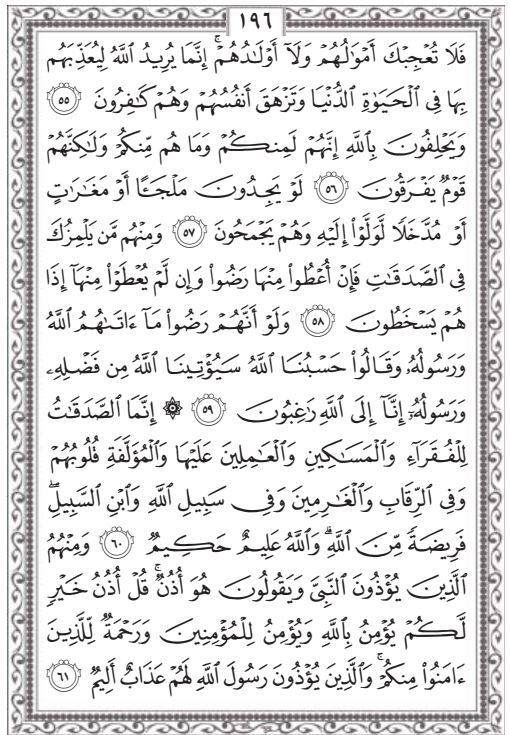 ١٩٦
فَلَا تُعْجِبْكَ أَمْوَٰلُهُمْ وَلَآ أَوْلَٰدُهُمْ ۚ إِنَّمَا يُرِيدُ ٱللَّهُ لِيُعَذِّبَهُم
بِهَا فِى ٱلْحَيَوٰةِ ٱلدُّنْيَا وَتَزْهَقَ أَنفُسُهُمْ وَهُمْ كَٰفِرُونَ ٥٥
وَيَحْلِفُونَ بِٱللَّهِ إِنَّهُمْ لَمِنكُمْ وَمَا هُم مِّنكُمْ وَلَٰكِنَّهُمْ
قَوْمٌ يَفْرَقُونَ ٥٦ لَوْ يَجِدُونَ مَلْجَـًٔا أَوْ مَغَٰرَٰتٍ
أَوْ مُدَّخَلًا لَّوَلَّوْا۟ إِلَيْهِ وَهُمْ يَجْمَحُونَ ٥٧ وَمِنْهُم مَّن يَلْمِزُكَ
فِى ٱلصَّدَقَٰتِ فَإِنْ أُعْطُوا۟ مِنْهَا رَضُوا۟ وَإِن لَّمْ يُعْطَوْا۟ مِنْهَآ إِذَا
هُمْ يَسْخَطُونَ ٥٨ وَلَوْ أَنَّهُمْ رَضُوا۟ مَآ ءَاتَىٰهُمُ ٱللَّهُ
وَرَسُولُهُۥ وَقَالُوا۟ حَسْبُنَا ٱللَّهُ سَيُؤْتِينَا ٱللَّهُ مِن فَضْلِهِۦ
وَرَسُولُهُۥٓ إِنَّآ إِلَى ٱللَّهِ رَٰغِبُونَ ٥٩ ۞ إِنَّمَا ٱلصَّدَقَٰتُ
لِلْفُقَرَآءِ وَٱلْمَسَٰكِينِ وَٱلْعَٰمِلِينَ عَلَيْهَا وَٱلْمُؤَلَّفَةِ قُلُوبُهُمْ
وَفِى ٱلرِّقَابِ وَٱلْغَٰرِمِينَ وَفِى سَبِيلِ ٱللَّهِ وَٱبْنِ ٱلسَّبِيلِ ۖ
فَرِيضَةً مِّنَ ٱللَّهِ ۗ وَٱللَّهُ عَلِيمٌ حَكِيمٌ ٦٠ وَمِنْهُمُ
ٱلَّذِينَ يُؤْذُونَ ٱلنَّبِىَّ وَيَقُولُونَ هُوَ أُذُنٌ ۚ قُلْ أُذُنُ خَيْرٍ
لَّكُمْ يُؤْمِنُ بِٱللَّهِ وَيُؤْمِنُ لِلْمُؤْمِنِينَ وَرَحْمَةٌ لِّلَّذِينَ
ءَامَنُوا۟ مِنكُمْ ۚ وَٱلَّذِينَ يُؤْذُونَ رَسُولَ ٱللَّهِ لَهُمْ عَذَابٌ أَلِيمٌ ٦١